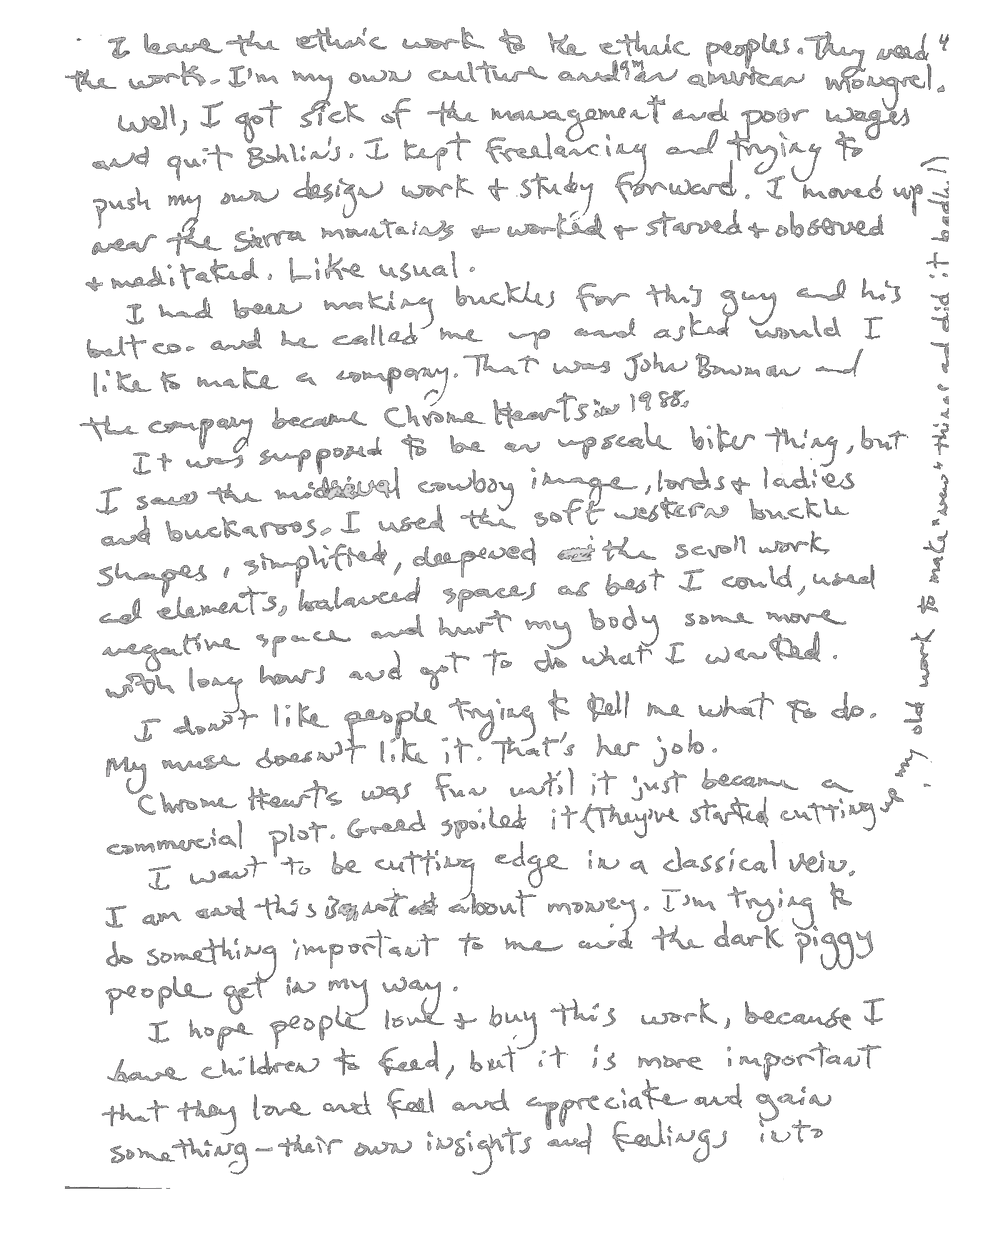 I leave the ethnic work to the ethnic peoples. They need 4
the work. I'm my own culture and I'm an american mongrel.
Well, I got sick of the management and poor wages
and quit Bohlin's. I kept freelancing and trying to
push my own design work + study forward. I moved up
near the Sierra mountains + worked + starved + observed
+ meditated. Like usual.
I had been making buckles for this guy and his
belt co. and he called me up and asked would I
like to make a company. That was John Bowman and
the company became Chrome Hearts in 1988.
It was supposed to be an upscale biker thing, but
I saw the midieval cowboy image, lords + ladies
and buckaroos. I used the soft western buckle
shapes, simplified, deepened the scroll work,
cel elements, balanced spaces as best I could, used
negative space and hurt my body some more
with long hours and got to do what I wanted.
I don't like people trying to tell me what to do.
My muse doesn't like it. That's her job.
Chrome Hearts was fun until it just became a
commercial plot. Greed spoiled it (They've started cutting up my old work to make "new" things and did it badly!)
I want to be cutting edge in a classical vein.
I am and this is not about money. I'm trying to
do something important to me and the dark piggy
people get in my way.
I hope people love + buy this work, because I
have children to feed, but it is more important
that they love and feel and appreciate and gain
something – their own insights and feelings into